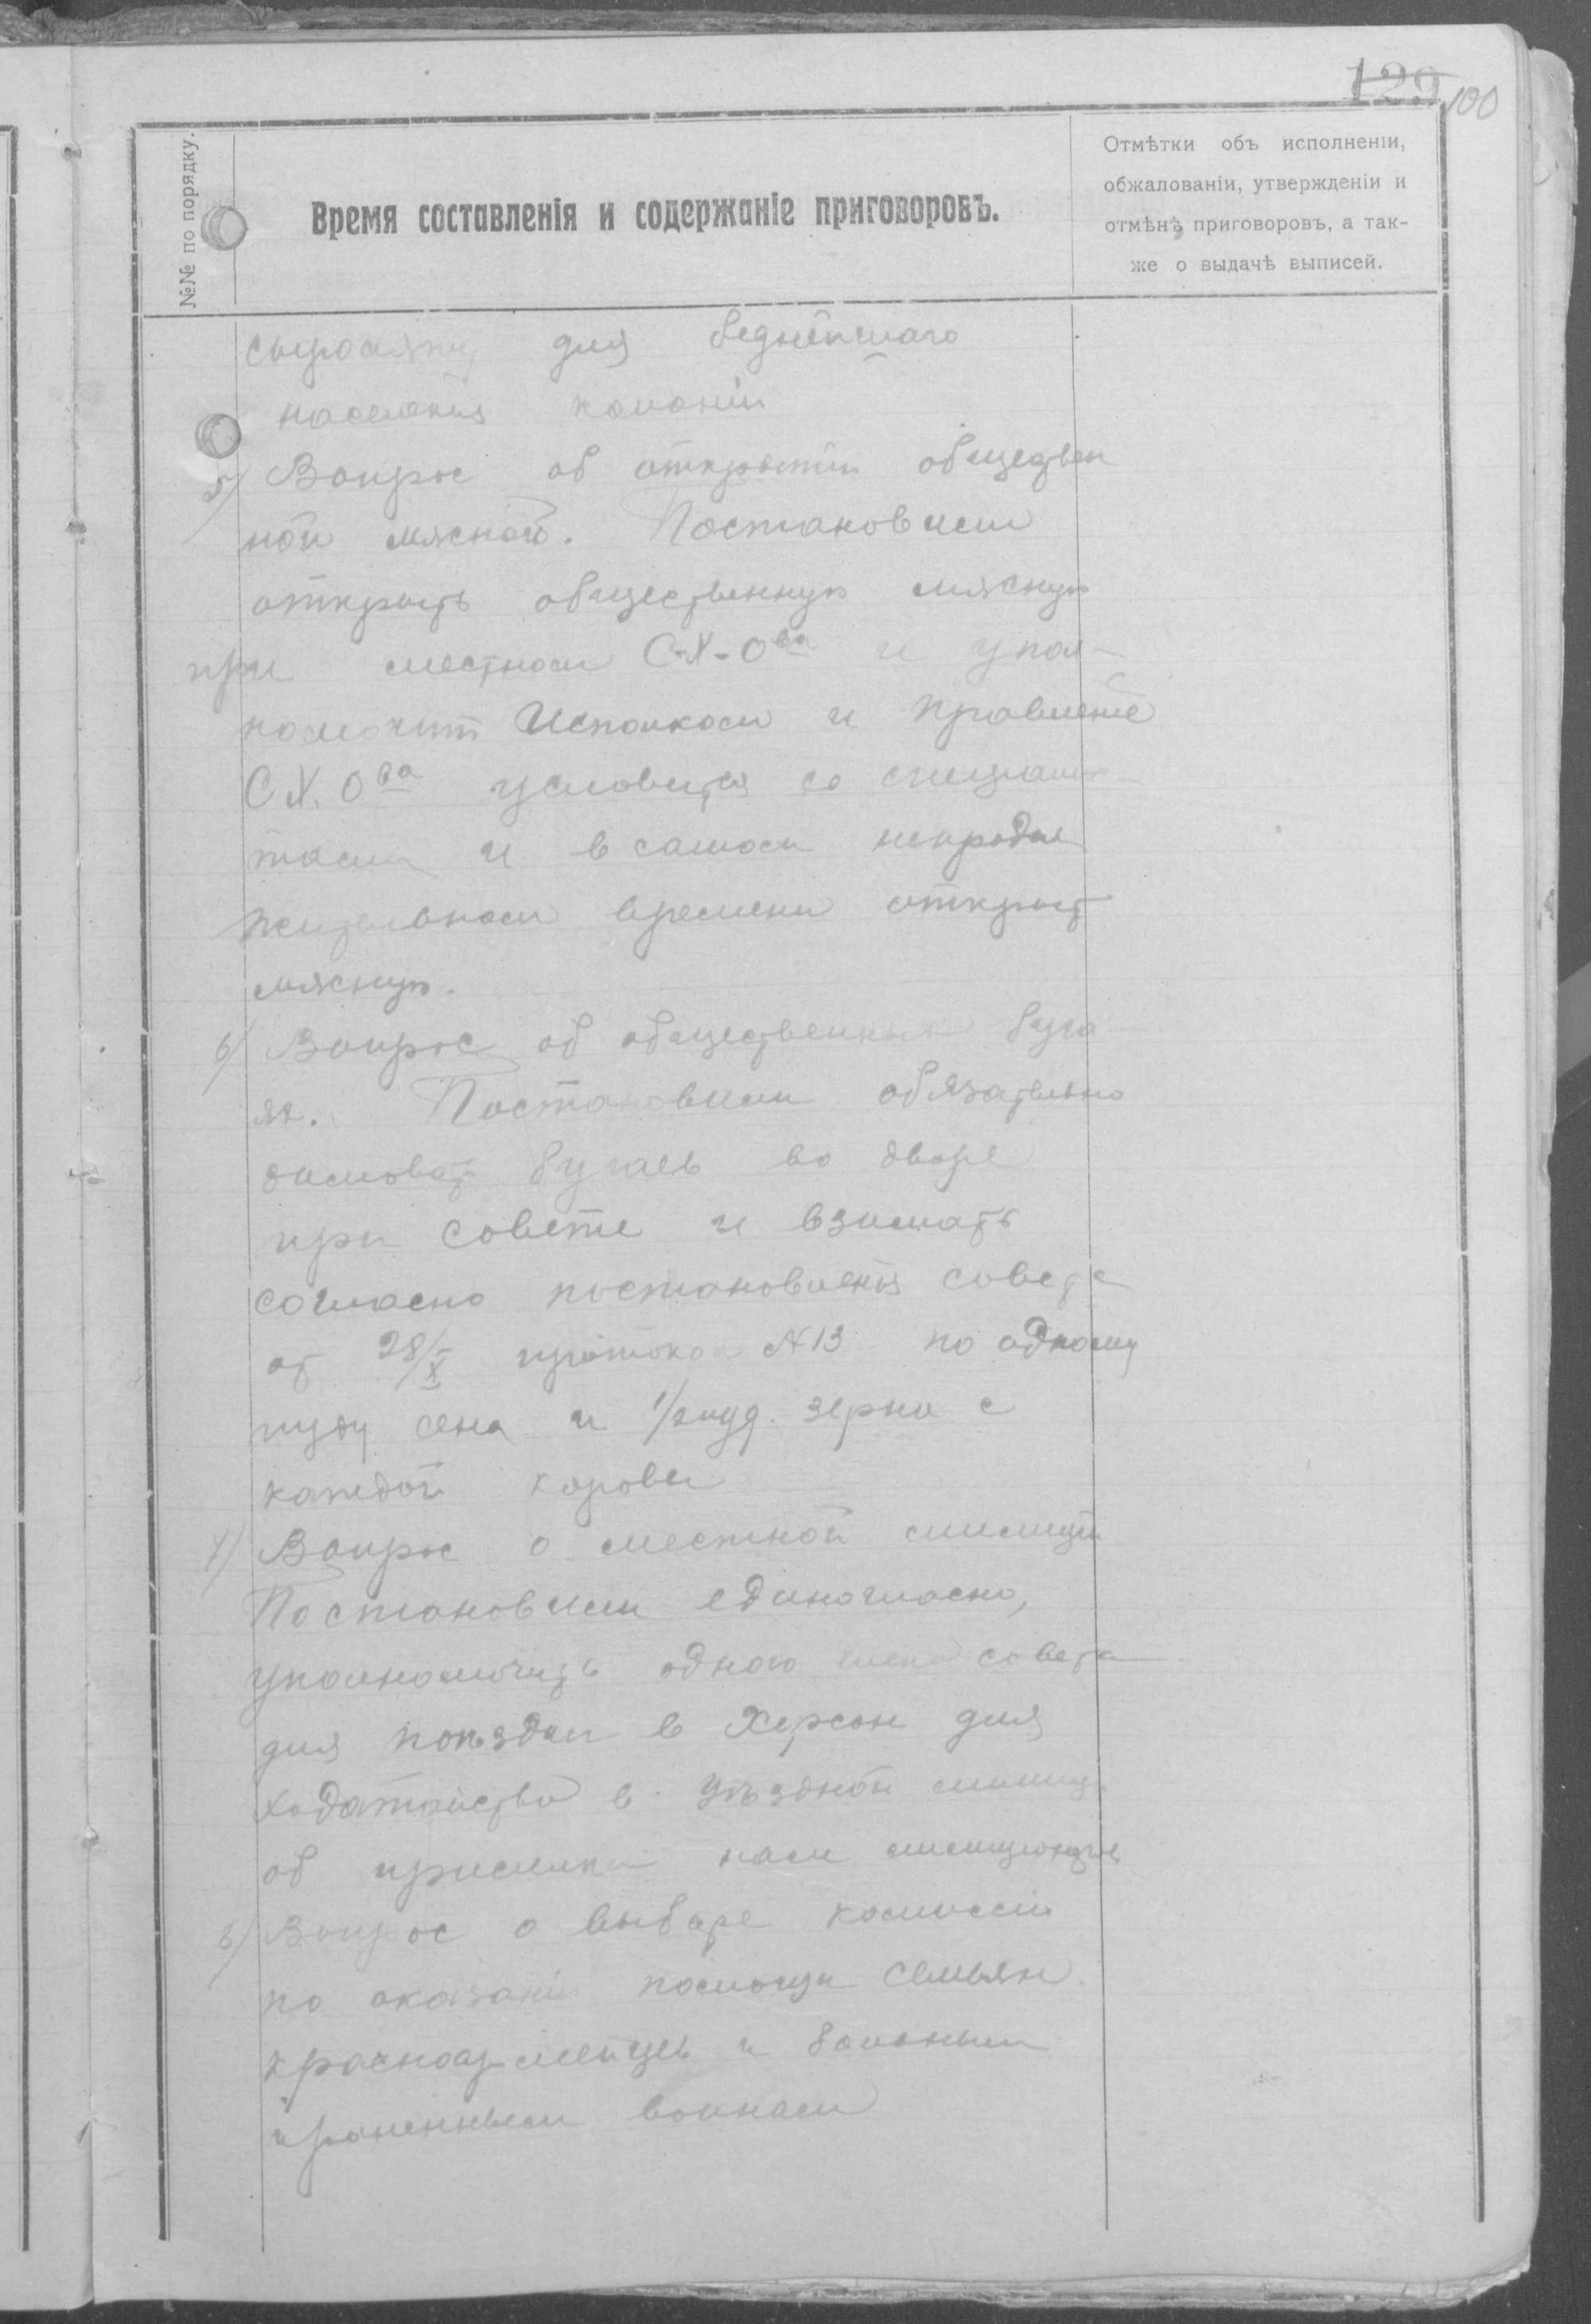 129 100
№№ по порядку.
Время составленія и содержаніе приговоровъ.
Отмѣтки объ исполненіи,
обжалованіи, утвержденіи и
отмѣнѣ приговоровъ, а так-
же о выдачѣ выписей.
для беднейшаго
населения колоніи
5) Вопрос об открытіи обществен
ной мясной. Постановили
открыть общественную мясную
при местном С-Х-Ова и упол-
номочит Исполком и правленіе
С.Х. Ова условится со специалис-
тами и в самом непродол
жительном времени открыт
мясную.
6) Вопрос об общественных буга
ях. Постановили обязательно
зимоват бугаев во дворе
при совете и взимать
согласно постановленія совета
от 28/X протокол №13 по одному
пуду сена и 1/2 пуд. зерна с
каждой коровы
7) Вопрос о местной милиціи
Постановили единогласно,
уполномочить одного члена совета
для поѣздки в Херсон для
ходатайства в уѣздной милиц.
об присылки нам милиционеров
8) Вопрос о выборе комиссіи
по оказаніи помощи семьям
красноармейцев и больным
и раненным воинам